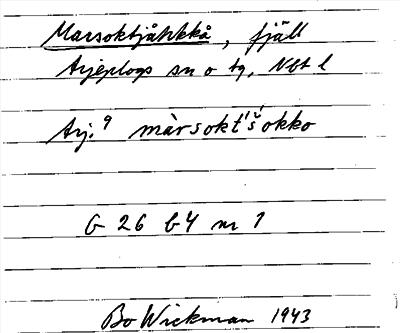 Marsoktjåhkkå, fjäll
Arjeplogs sn o tg, Nbt l
Arj. 9 màrsokt́š́okko
G 26 b4 nr 1
Bo Wickman 1943